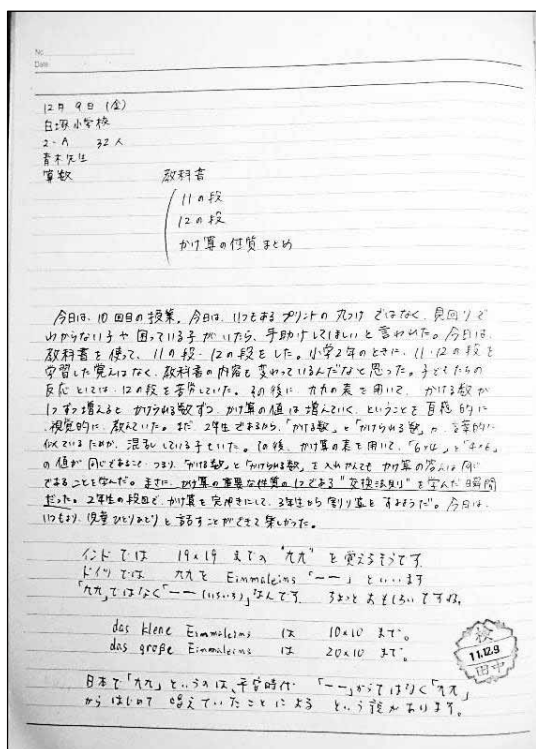 No.
Date
12月 9日 (金)
白塚小学校
2-A 32人
青木先生
算数 教科書
11の段
12の段
かけ算の性質まとめ
今日は、10回目の授業。今日は、いつもあるプリントの丸つけではなく、見回りで
わからない子や困っている子がいたら、手助けしてほしいと言われた。今日は、
教科書を使って、11の段・12の段をした。小学2年のときに、11・12の段を
学習した覚えはなく、教科書の内容も変わっているんだなと思った。子どもたちの
反応としては、12の段を苦労していた。その後に、九九の表を用いて、かける数が
1つずつ増えると かけられる数ずつ、かけ算の値は増えていく、ということを直感的に
視覚的に、教えていた。まだ、2年生であるから、「かける数」と「かけられる数」が、文章的に
似ているためか、混乱している子もいた。その後、かけ算の表を用いて、「6×4」と「4×6」
の値が同じであること、つまり、「かける数」と「かけられる数」を入れかえても かけ算の答えは同じ
であることを学んだ。まさに、かけ算の重要な性質の1つである"交換法則"を学んだ瞬間
だった。2年生の段階で、かけ算を完ぺきにして、3年生から割り算をするようだ。今日は、
いつもより、児童ひとりひとりと話すことができて楽しかった。
インドでは 19×19 までの "九九" を覚えるそうです
ドイツでは 九九を Einmaleins 「一一」といいます
「九九」ではなく「一一(いちいち)」なんです。ちょっとおもしろいですね。
das kleine Einmaleins は 10×10 まで。
das große Einmaleins は 20×10 まで。
日本で「九九」というのは、平安時代 「一一」からではなく「九九」
からはじめて 唱えていたことによる という説があります。
11.12.9
田中